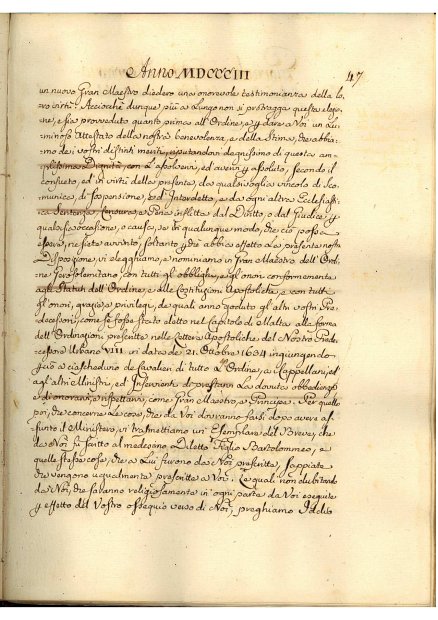 Anno MDCCCIII
47
un nuovo Gran Maestro diedero una onorevole testimonianza della lo
ro virtù. Acciocchè dunque più a lungo non si protragga questa elezio
ne, e sia proveduto quanto prima all'Ordine, e p dare a Voi un lu
minoso Attestato della nostra benevolenza, e della Stima, che abbia
mo dei vostri distinti meriti, reputandovi degnissimo di questa am
plissima Dignità, con l'assolvervi, ed avervi p assoluto, secondo il
consueto, ed in virtù della presente, da qualsivoglia vincolo di Sco
munica, di Sospensione, e d'Interdetto, e da ogni altra Ecclesiasti
ca Sentenza, Censura, e Pena inflitta dal Diritto, o dal Giudice, p
qualsisia occasione, o causa, se in qualunque modo, che ciò possa
essere, ne siate avvinto, soltanto p che abbia effetto la presente nostra
Disposizione, vi eleghiamo, e nominiamo in Gran Maestro dell'Ordi
ne Gerosolimitano con tutti gl'obblighi, e gl'onori conformemente
agli Statuti dell'Ordine, e alle Costituzioni Apostoliche, e con tutti
gl'onori, grazie, e privilegi, de quali anno goduto gli altri vostri Pre
decessori, come se foste stato eletto nel Capitolo di Malta alla forma
dell'Ordinazioni prescritte nelle Lettere Apostoliche del Nostro Prede
cessore Urbano VIII. in data de' 21. Ottobre 1634 ingiungendo
p ciò a ciascheduno de Cavalieri di tutto l'Ordine, a Cappellani, ed
agl'altri Ministri, ed Inservienti di prestarvi la dovuta obbedienza
e di onorarvi, e rispettarvi, come Gran Maestro, e Principe. Per quello
poi, che concerne le cose, che da Voi dovranno farsi dopo avere as
sunto il Ministero, vi trasmettiamo un Esemplare del Breve, che
da Noi fù scritto al medesimo Diletto Figlio Bartolommeo, e
quelle stesse cose, che a Lui furono da Noi prescritte, sappiate
che vengono ugualmente prescritte a Voi. Le quali non dubitando
da Noi, che saranno religiosamente in ogni parte da Voi eseguite
p effetto del Vostro ossequio verso di Noi, preghiamo Iddio